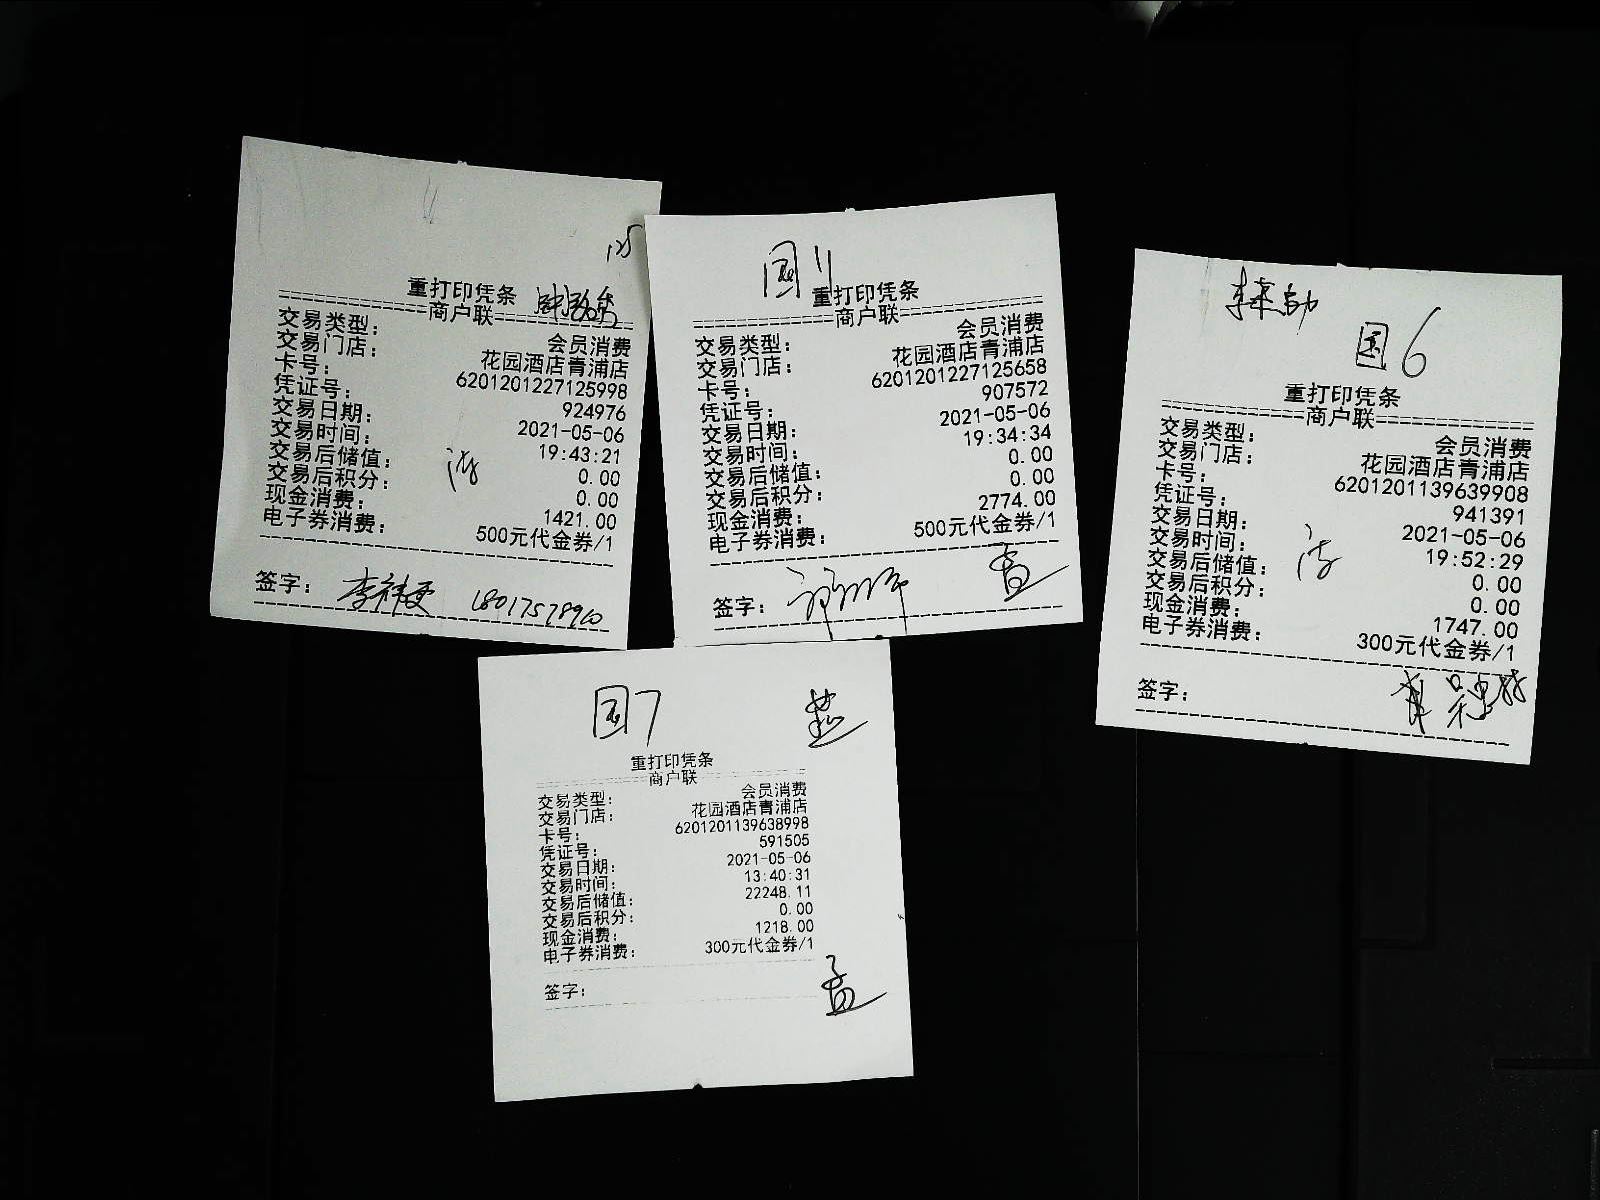 重打印凭条
商户联
交易类型: 会员消费
交易门店: 花园酒店青浦店
卡号: 6201201227125998
凭证号: 924976
交易日期: 2021-05-06
交易时间: 19:43:21
交易后储值: 0.00
交易后积分: 0.00
现金消费: 1421.00
电子券消费: 500元代金券/1
签字: 18017578960
国11
重打印凭条
商户联
交易类型: 会员消费
交易门店: 花园酒店青浦店
卡号: 6201201227125658
凭证号: 907572
交易日期: 2021-05-06
交易时间: 19:34:34
交易后储值: 0.00
交易后积分: 0.00
现金消费: 2774.00
电子券消费: 500元代金券/1
签字: 孟
国6
重打印凭条
商户联
交易类型: 会员消费
交易门店: 花园酒店青浦店
卡号: 6201201139639908
凭证号: 941391
交易日期: 2021-05-06
交易时间: 19:52:29
交易后储值: 0.00
交易后积分: 0.00
现金消费: 1747.00
电子券消费: 300元代金券/1
签字:
国7
重打印凭条
商户联
交易类型: 会员消费
交易门店: 花园酒店青浦店
卡号: 6201201139638998
凭证号: 591505
交易日期: 2021-05-06
交易时间: 13:40:31
交易后储值: 22248.11
交易后积分: 0.00
现金消费: 1218.00
电子券消费: 300元代金券/1
签字: 孟